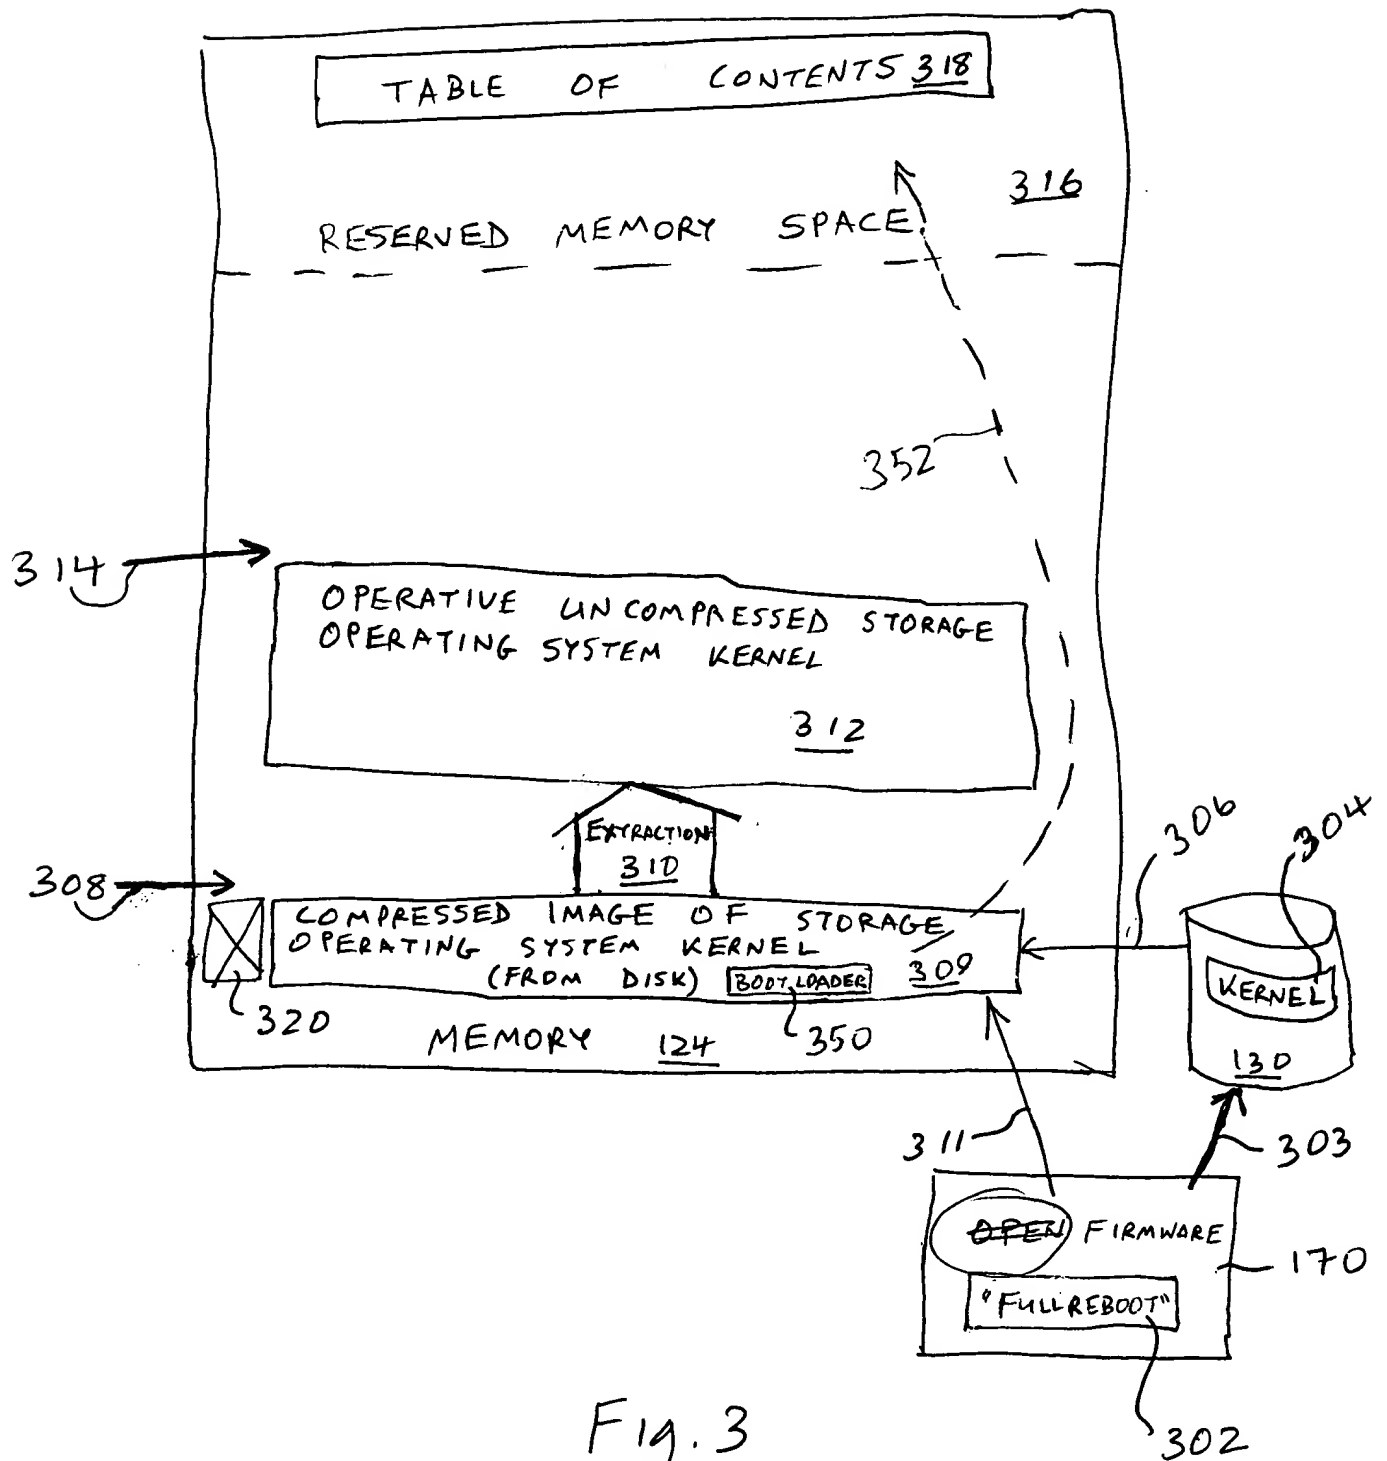 TABLE OF CONTENTS 318
316
RESERVED MEMORY SPACE
352
314
OPERATIVE UNCOMPRESSED STORAGE
OPERATING SYSTEM KERNEL
312
EXTRACTION
310
306
304
308
COMPRESSED IMAGE OF STORAGE
OPERATING SYSTEM KERNEL
(FROM DISK) BOOT LOADER 309
KERNEL
320
MEMORY 124
350
130
311
303
OPEN FIRMWARE
170
"FULLREBOOT"
302
Fig. 3